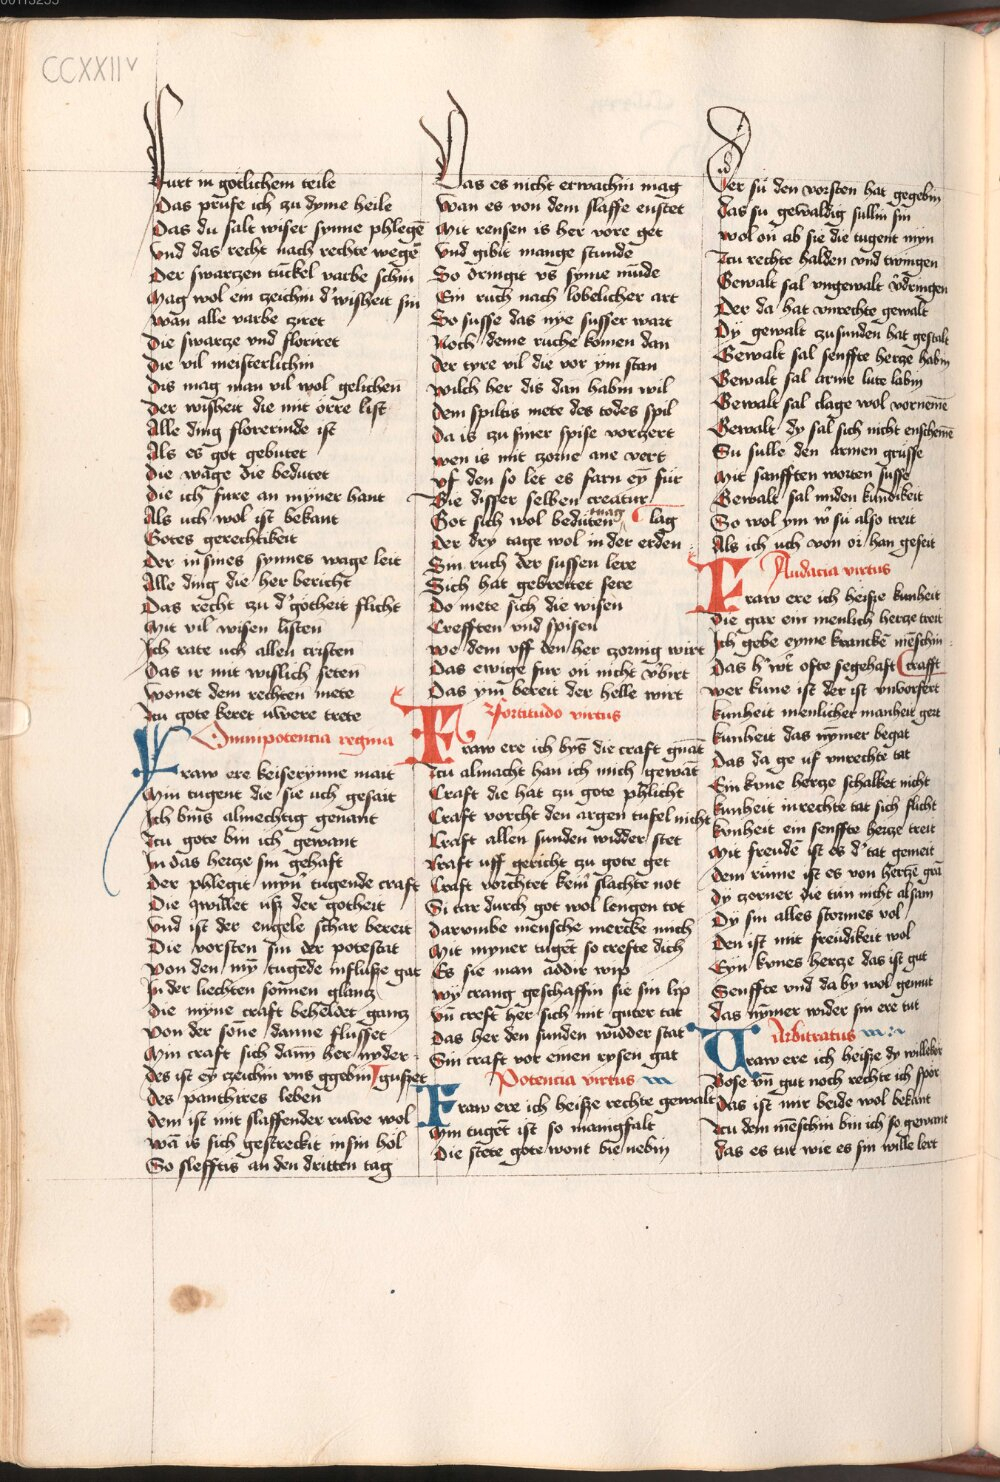 CCXXII v
Furt in gotlichem teile
Das prufe ich zu dyme heile
Das du salt wiser synne phlegē
Vnd das recht nach rechte wegē
Der swartzen tuckel varbe schin
Mag wol ein zeichin d' wisheit sin
Wan alle varbe ziret
Die swarcze vnd floriret
Die vil meisterlichin
Dis mag man vil wol gelichen
Der wisheit die mit orre list
Alle ding florernide ist
Als es got gebutet
Die wage die bedutet
Die ich fure an myner hant
Als uch wol ist bekant
Gotes gerechtikeit
Der in sines synnes wage leit
Alle ding die her bericht
Das recht zu d' gotheit flicht
Mit vil wisen listen
Ich rate uch allen cristen
Das ir mit wislich seten
Wonet dem rechten mete
Zcu gote keret uwere trete
Omnipotencia regina
Fraw ere keiserynne mait
Myn tugent die sie uch gesait
Ich bins almechtig genant
Zcu gote bin ich gewant
In das hertze sin gehaft
Der phlegit myn' tugende craft
Die qwillet usz der gotheit
Vnd ist der engele schar bereit
Die vorsten sin der potestat
Von den my tugēde influsze gat
In der liechten sonnen glantz
Die myne craft beheldet gantz
Von der sone danne flusset
Min craft sich dann her nyder
Des ist ey zceichin vns ggebin gusset
Des panthires leben
Dem ist mit slaffender ruwe wol
Wā is sich gestreckit in sin hol
So slefftis an den dritten tag
Das es nicht erwachin mag
Wan es von dem slaffe enstet
Mit rensen is her vore get
Vnd gibit mange stunde
So dringit vs syme mūde
Ein ruch nach lobelicher art
So susse das nye susser wart
Noch deme ruche komen dan
Der tyre vil die vor ym stan
Wilch her dis dan habin wil
Dem spiltis mete des todes spil
Da is zu siner spise vorzert
Wen is mit zorne ane vert
Vf den so let es farn ey für
Bie disser selben creatur
Got sich wol beduten mag lag
Der dry tage wol in der erden
Sin ruch der sussen lere
Sich hat gebreitet sere
Do mete sich die wisen
Crefften vnd spisen
We dem vff den her zornig wirt
Das ewige fur on nicht v̄birt
Das ym bereit der helle wirt
Fortitudo virtus
Fraw ere ich bys die craft gnāt
Zcu almacht han ich mich gewāt
Craft die hat zu gote phlicht
Craft vorcht den argen tufel nicht
Craft allen sunden widder stet
Craft vff gericht zu gote get
Craft vorchtet kein' slachte not
Si tar durch got wol lengen tot
Darumbe mensche mercke mich
Mit myner tugēt so crefte dich
Es sie man addir wip
Wy crang geschaffin sie sin lip
Vn̄ creft her sich mit guter tat
Das her den sunden widder stat
Sin craft vor einen rysen gat
Potencia virtus
Fraw ere ich heisze rechte gewalt
Myn tugēt ist so manigfalt
Die stete gote wont bie nebin
Der su den vorsten hat gegebin
Das su gewaldig sullin sin
Wol on ab sie die tugent myn
Zcu rechte halden vnd twingen
Gewalt sal vngewalt v̄dringen
Der da hat vnrechte gewalt
Dy gewalt zu sunden hat gestalt
Gewalt sal senffte hertze habin
Gewalt sal arme lute labin
Gewalt sal clage wol vornemē
Gewalt dy sal sich nicht enschemē
Su sulle den armen grusse
Mit sanfften worten susse
Gewalt sal miden kundikeit
So wol ym w' su also treit
Als ich uch von oi han geseit
Audacia virtus
Fraw ere ich heisze kunheit
Die gar ein menlich hertze treit
Ich gebe eyme kranckē mēschin
Das h' w't ofte segehaft crafft
Wer kune ist der ist vnvorfert
Kunheit menlicher manheit gert
Kunheit das nymer begat
Das da ge uf vnrechte tat
Ein kune hertze schalket nicht
Kunheit in rechte tat sich flicht
Kvnheit ein senffte hertze treit
Mit freudē ist es d' tat gemeit
Dem rūme ist es von hertzē grā
Dy zcorner die tun nicht alsam
Dy sin alles stormes vol
Den ist mit freidikeit wol
Eyn kvnes hertze das ist gut
Senffte vnd da by wol gemut
Das nymer wider sin ere tut
Arbitratus
Fraw ere ich heisze dy willekor
Bose vn̄ gut noch rechte ich spor
Das ist mir beide wol bekant
Zcu dem mēschin bin ich so gewant
Das es tut wie es sin wille lert